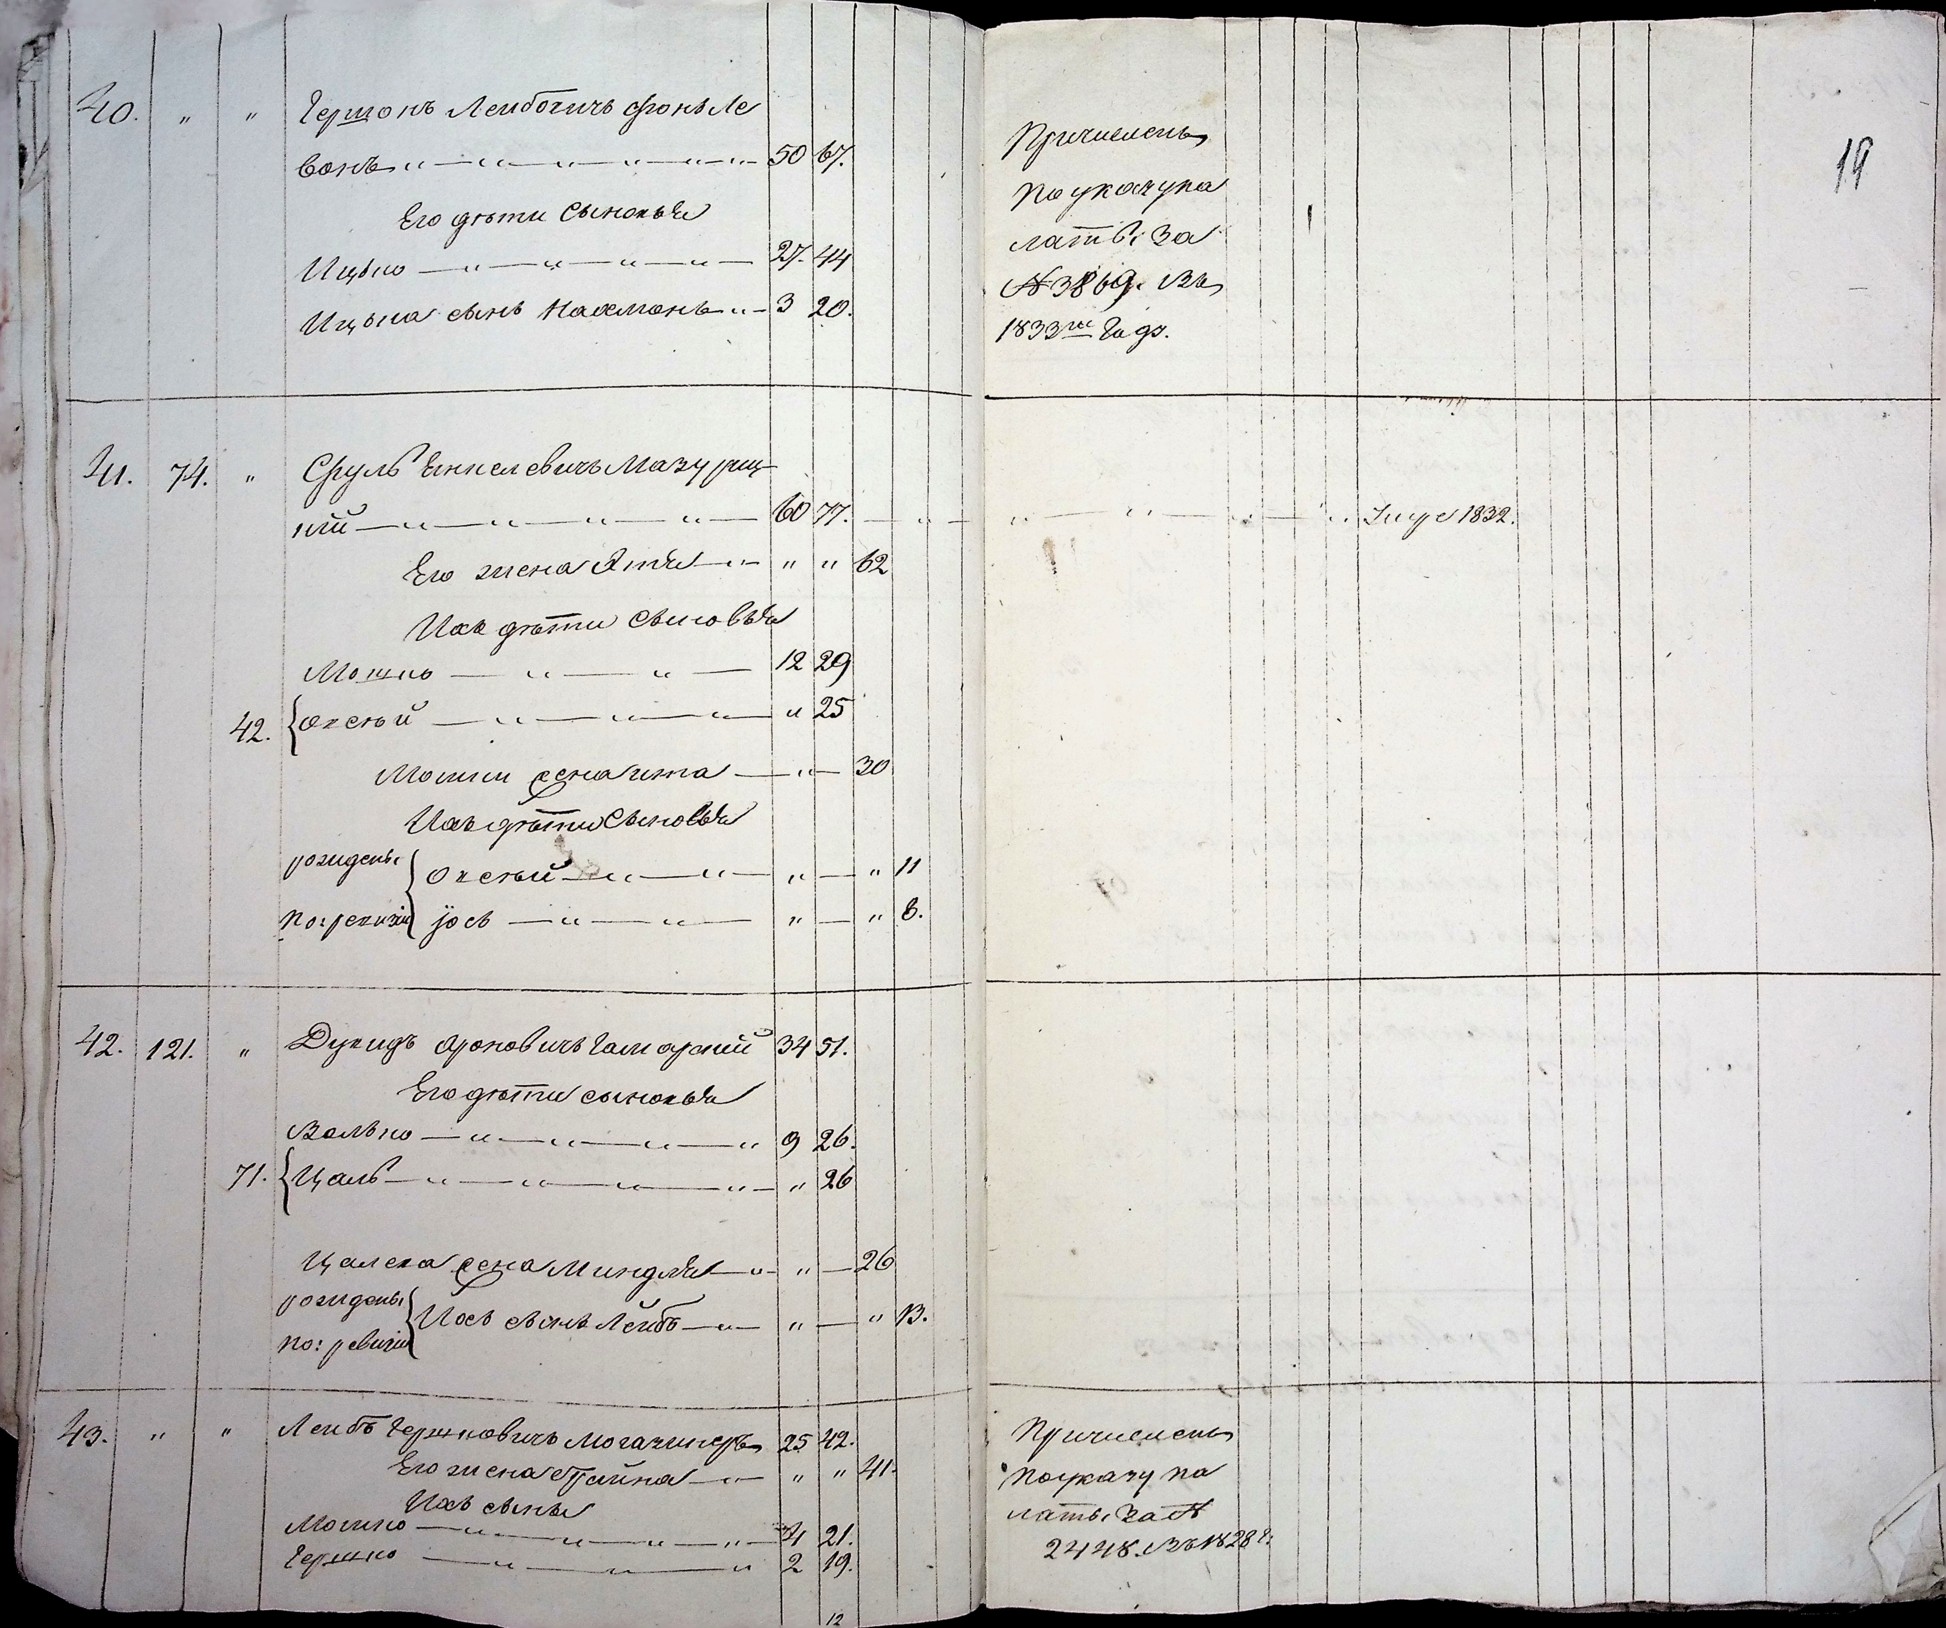 40. " " Гершонъ Лейбовичъ фонъ Ле
вонъ 50 67.
Его дѣти Сыновья
Ицько 27. 44
Ицька сынъ Нахманъ 3 20.
Причисленъ
по указу па
латы За
№ 3869. Въ
1833мъ Годѣ.
19
41. 74. " Сруль Янкелевичъ Мазуриц
кій 60 77. Умре 1832.
Его жена Этя " " 62
Ихъ дѣти Сыновья
Мошко 12 29
42. Овсѣй " 25
Мошки жена ита 30
Ихъ дѣти Сыновья
рождены Овсѣй " " 11
по: ревизіи Іось " " 8.
42. 121. " Дувидъ Ароновичъ 34 51.
Его дѣти сыновья
Волько 9 26.
71. Цаль " 26
Цалева жена Миндля " 26
рождены
по: ревизіи Ихъ сынъ Лейбъ " " 13.
43. " " Лейбъ Гершковичъ Могазинеръ 25 42.
Его жена Трайна " " 41.
Ихъ сыны
Мошко 4 21.
Гершко 2 19.
12
Причисленъ
по указу па
латы За №
2448. Въ 1828 г: